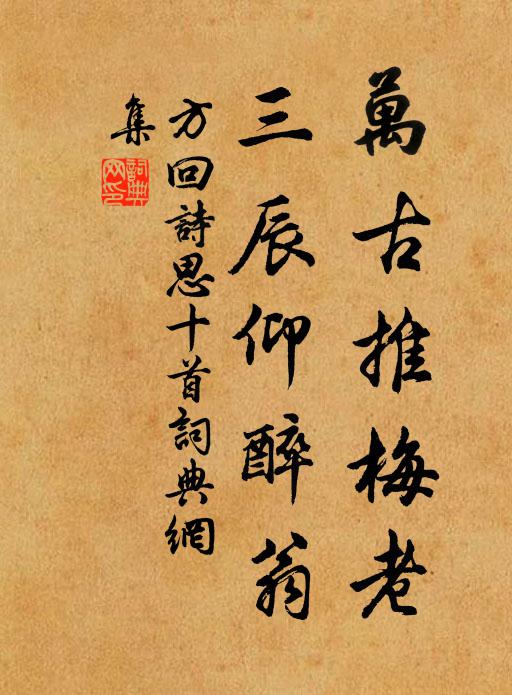 萬古推梅老
三辰仰醉翁
方回詩思十首詞典網
集
詞典
网印